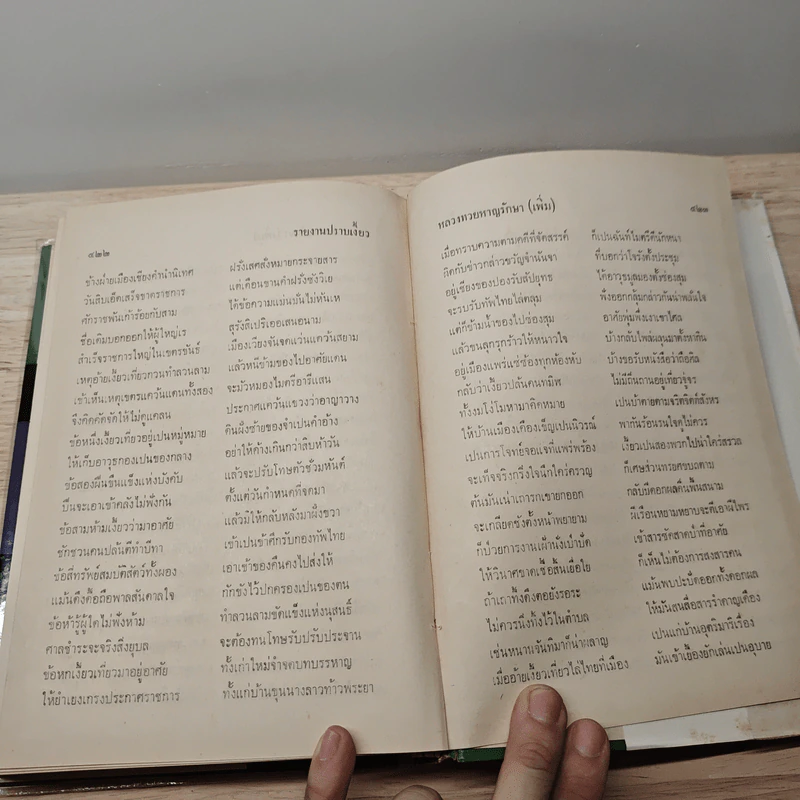 ๔๒๒
รายงานปราบเงี้ยว
ข้างฝ่ายเมืองเชียงคำนำนิเทศ
ฝรั่งเศสสั่งหมายกระจายสาร
วันสิบเอ็ดเสร็จขาดราชการ
แต่เดือนขานคำฝรั่งซังวิเย
ศักราชพันเก้าร้อยกับสาม
ได้ข้อความแม่นมั่นไม่หันเห
ชื่อเดิมบอกออกให้ผู้ใหญ่เร
สุรังสิเปริเออเสนอนาม
สำเร็จราชการใหญ่ในเขตรขันธ์
เมืองเวียงจันจดแว่นแดนสยาม
เหตุอ้ายเงี้ยวเที่ยวกวนทำลวนลาม
แล้วหนีข้ามของไปอาศัยแดน
เข้าเห็นเหตุเขตรแคว้นแดนทั้งสอง
จะมัวหมองไมตรีอารีแสน
จึงคิดตัดจัดให้ไม่ดูแคลน
ประกาศแดนแขวงว่าอาญาวาง
ข้อหนึ่งเงี้ยวเที่ยวอยู่เปนหมู่หมาย
ดินฝั่งซ้ายของจำเปนคำอ้าง
ให้เก็บอาวุธกองเปนของกลาง
อย่าให้ค้างเกินกว่าสิบห้าวัน
ข้อสองฝืนขืนแข็งแห่งบังคับ
แล้วจะปรับโทษตัวชั่วมหันต์
ปืนจะเอาเข้าคลังไม่ฟังกัน
ตั้งแต่วันกำหนดที่จดมา
ข้อสามห้ามเงี้ยวว่ามาอาศัย
แล้วมิให้กลับหลังมาฝั่งขวา
ชักชวนคนปล้นตีทำบีฑา
เข้าเปนข้าศึกรับกองทัพไทย
ข้อสี่ทรัพย์สมบัติสัตว์ทั้งผอง
เอาเข้าของคืนคงไปส่งให้
แม้นดึงดื้อถือพาลสันดาลใจ
กักขังไว้ปกครองเปนของตน
ข้อห้ารู้ผู้ใดไม่ฟังห้าม
ทำลวนลามขัดแข็งแห่งนุสนธิ์
ศาลชำระจะจริงสิ่งยุบล
จะต้องทนโทษรับปรับประจาน
ข้อหกเงี้ยวเที่ยวมาอยู่อาศัย
ทั้งเก่าใหม่จำจดบทบรรหาญ
ให้ยำเยงเกรงประกาศราชการ
ทั้งแก่บ้านขุนนางลาวท้าวพระยา
หลวงทวยหาญรักษา (เพิ่ม)
๔๒๓
เมื่อทราบความตามคดีที่จัดสรรค์
ก็เปนฉันท์ไมตรีดีนักหนา
ลิดกับข่าวกล่าวขวัญจำนันจา
ที่บอกว่าโจรังตั้งประชุม
อยู่เชียงของปองรับสัปยุทธ
ได้อาวุธมูลมองตั้งซ่องสุม
จะรบรับทัพไทยไล่ตลุม
พึ่งออกกลุ้มกล่าวกันน่าพลั่นใจ
แต่ก็ข้ามน้ำของไปซ่องสุม
อาศัยพุ่มพึ่งเงาเขาไศล
แล้วซนสุกรุกร้าวให้หนาวใจ
บ้างกลับไพล่มลุนมาตั้งหากิน
อยู่เมืองแพร่น่แซ่ซ้องทุกห้องหับ
บ้างขอรับหนังสือว่าถือศิล
กลับว่าเงี้ยวปล้นคนทมิฬ
ไม่มีถิ่นถานอยู่เที่ยวจู่จร
ทั้งงมโง่งโมหามาคิดหมาย
เปนบ้าตายตามจริตอิตถ์สังหร
ให้บ้านเมืองเคืองเข็ญเปนนิวรณ์
พากันร้อนรนใจดูไม่ควร
เปนการใจทย์จอแจที่แพร่พร้อง
เงี้ยวเปนสองพวกไปน่าใคร่สรวล
จะเท็จจริงกริ่งใจนึกใคร่ครวญ
ก็เศษส่วนทรยศขบถตาม
ต้นมันเน่าเถารกเขายกออก
กลับมีดอกผลดื่นพื้นสนาม
จะเกลียดชังตั้งหน้าพยายาม
ผีเรือนหยามหยาบจะดีเอาผีไพร
ก็ป่วยการงานเผ่านั่งเป่าปัด
เข้าสารซัดสาดบำที่อาศัย
ให้วินาศขาดเชื้อสิ้นเยื่อใย
ก็เห็นไม่ต้องการสงสารตน
ถ้าเถาทั้งดึงดอยังรอระ
แม้นพบปะปัดออกทั้งดอกผล
ไม่ควรนึ่งทิ้งไว้ในตำบล
ให้มันสนสื่อสารรำคาญเคือง
เช่นหนานเจ้นทิมาก็น่าผลาญ
เปนแก่บ้านอุตริมาริเรื่อง
เมื่ออ้ายเงี้ยวเที่ยวไล่ไทยที่เมือง
มันเข้าเยื้องยักเล่นเปนอุบาย